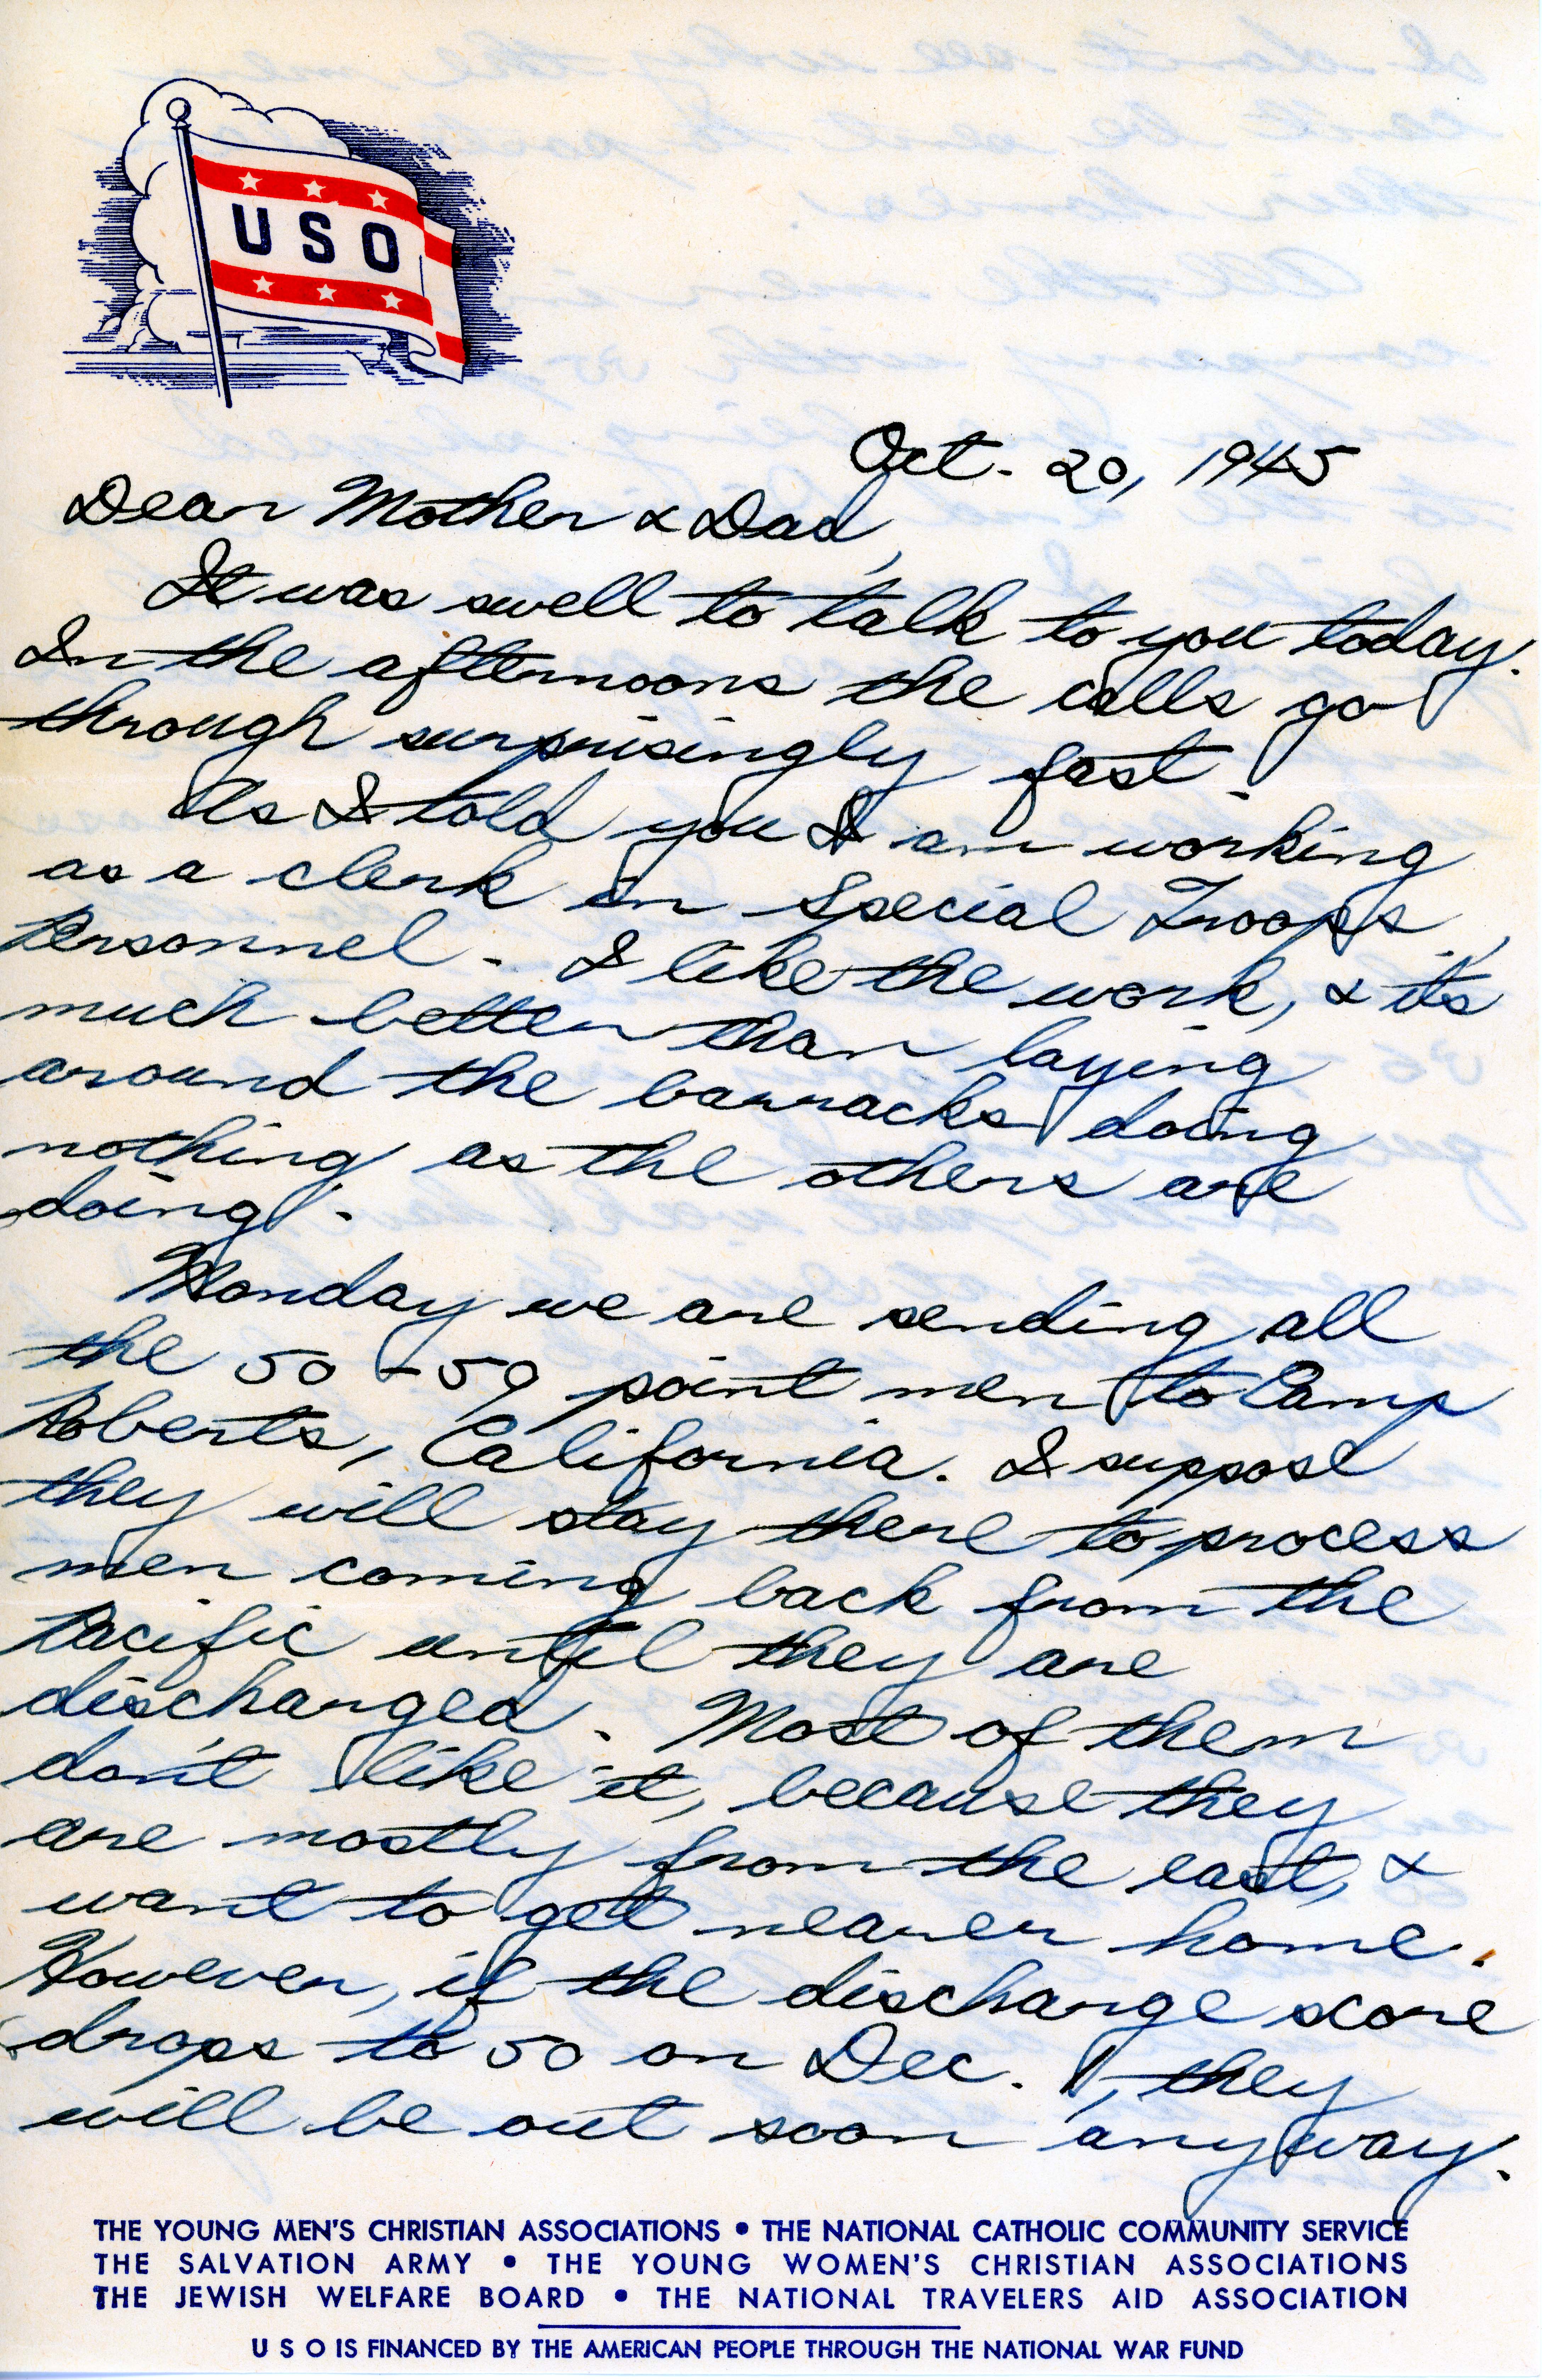 USO
Oct. 20, 1945
Dear Mother & Dad,
It was swell to talk to you today.
In the afternoons the calls go
through surprisingly fast.
As I told you I am working
as a clerk in Special Troops
Personnel. I like the work, & its
much better than laying
around the barracks doing
nothing as the others are
doing.
Monday we are sending all
the 50-59 point men to Camp
Roberts, California. I suppose
they will stay there to process
men coming back from the
Pacific until they are
discharged. Most of them
don't like it, because they
are mostly from the east, &
want to get nearer home.
However, if the discharge score
drops to 50 on Dec. 1, they
will be out soon anyway.
THE YOUNG MEN'S CHRISTIAN ASSOCIATIONS • THE NATIONAL CATHOLIC COMMUNITY SERVICE
THE SALVATION ARMY • THE YOUNG WOMEN'S CHRISTIAN ASSOCIATIONS
THE JEWISH WELFARE BOARD • THE NATIONAL TRAVELERS AID ASSOCIATION
U S O IS FINANCED BY THE AMERICAN PEOPLE THROUGH THE NATIONAL WAR FUND